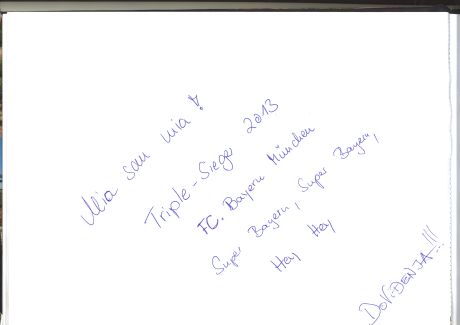 Mia san mia!
Triple-Sieger 2013
FC. Bayern München
Super Bayern, Super Bayern,
Hey Hey
DOVIĐENJA!!!